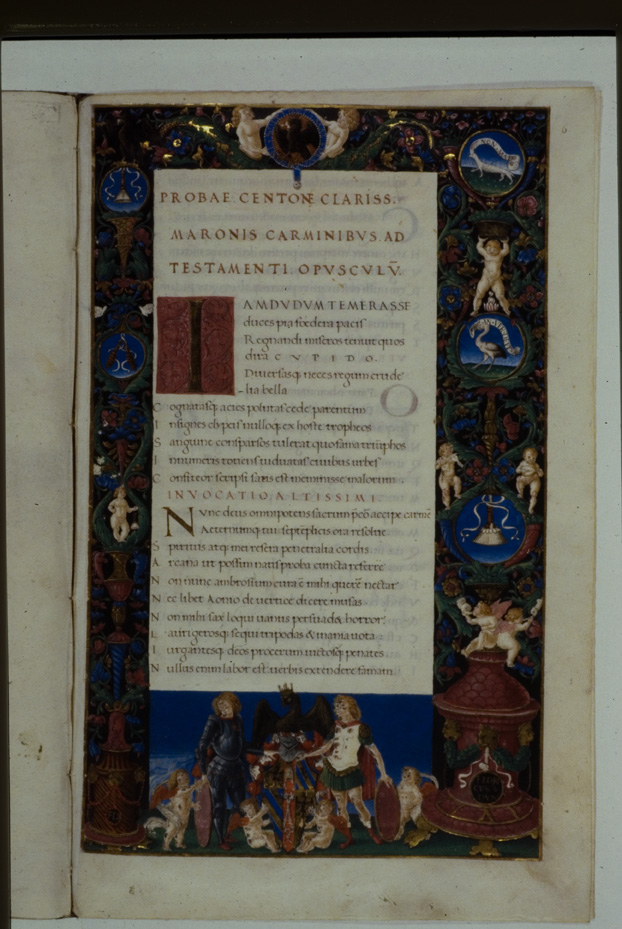 PROBAE CENTONE CLARISS.
MARONIS CARMINIBVS. AD
TESTAMENTI. OPVSCVLV̄.
IAMDVDVM TEMERASSE
duces pia foedera pacis
Regnandi miseros tenuit quos
dira CVPIDO.
Diuersasq; neces regum crude
lia bella
Cognatasq; acies pollutas cede parentum
Insignes clypeos nulloq; ex hoste tropheos
Sanguine conspersos tulerat quos fama triūphos
Innumeris totiens uiduatas ciuibus urbes
Confiteor scripsi satis est meminisse malorum.
INVOCATIO. ALTISSIMI.
Nunc deus omnipotens sacrum p̄cor accipe carmē
Aeternumq; tui septēplicis ora resolue
Spiritus atq; mei resera penetralia cordis
Arcana ut possim natis proba cuncta referre
Non nunc ambrosium cura ē mihi querē nectar
Nec libet Aonio de uertice dicere musas
Non mihi saxa loqui uanus persuadet horror:
Laurigerosq; sequi tripodas & inania uota
Iurgantesq; deos procerum uictosq; penates
Nullus enim labor est uerbis extendere famam